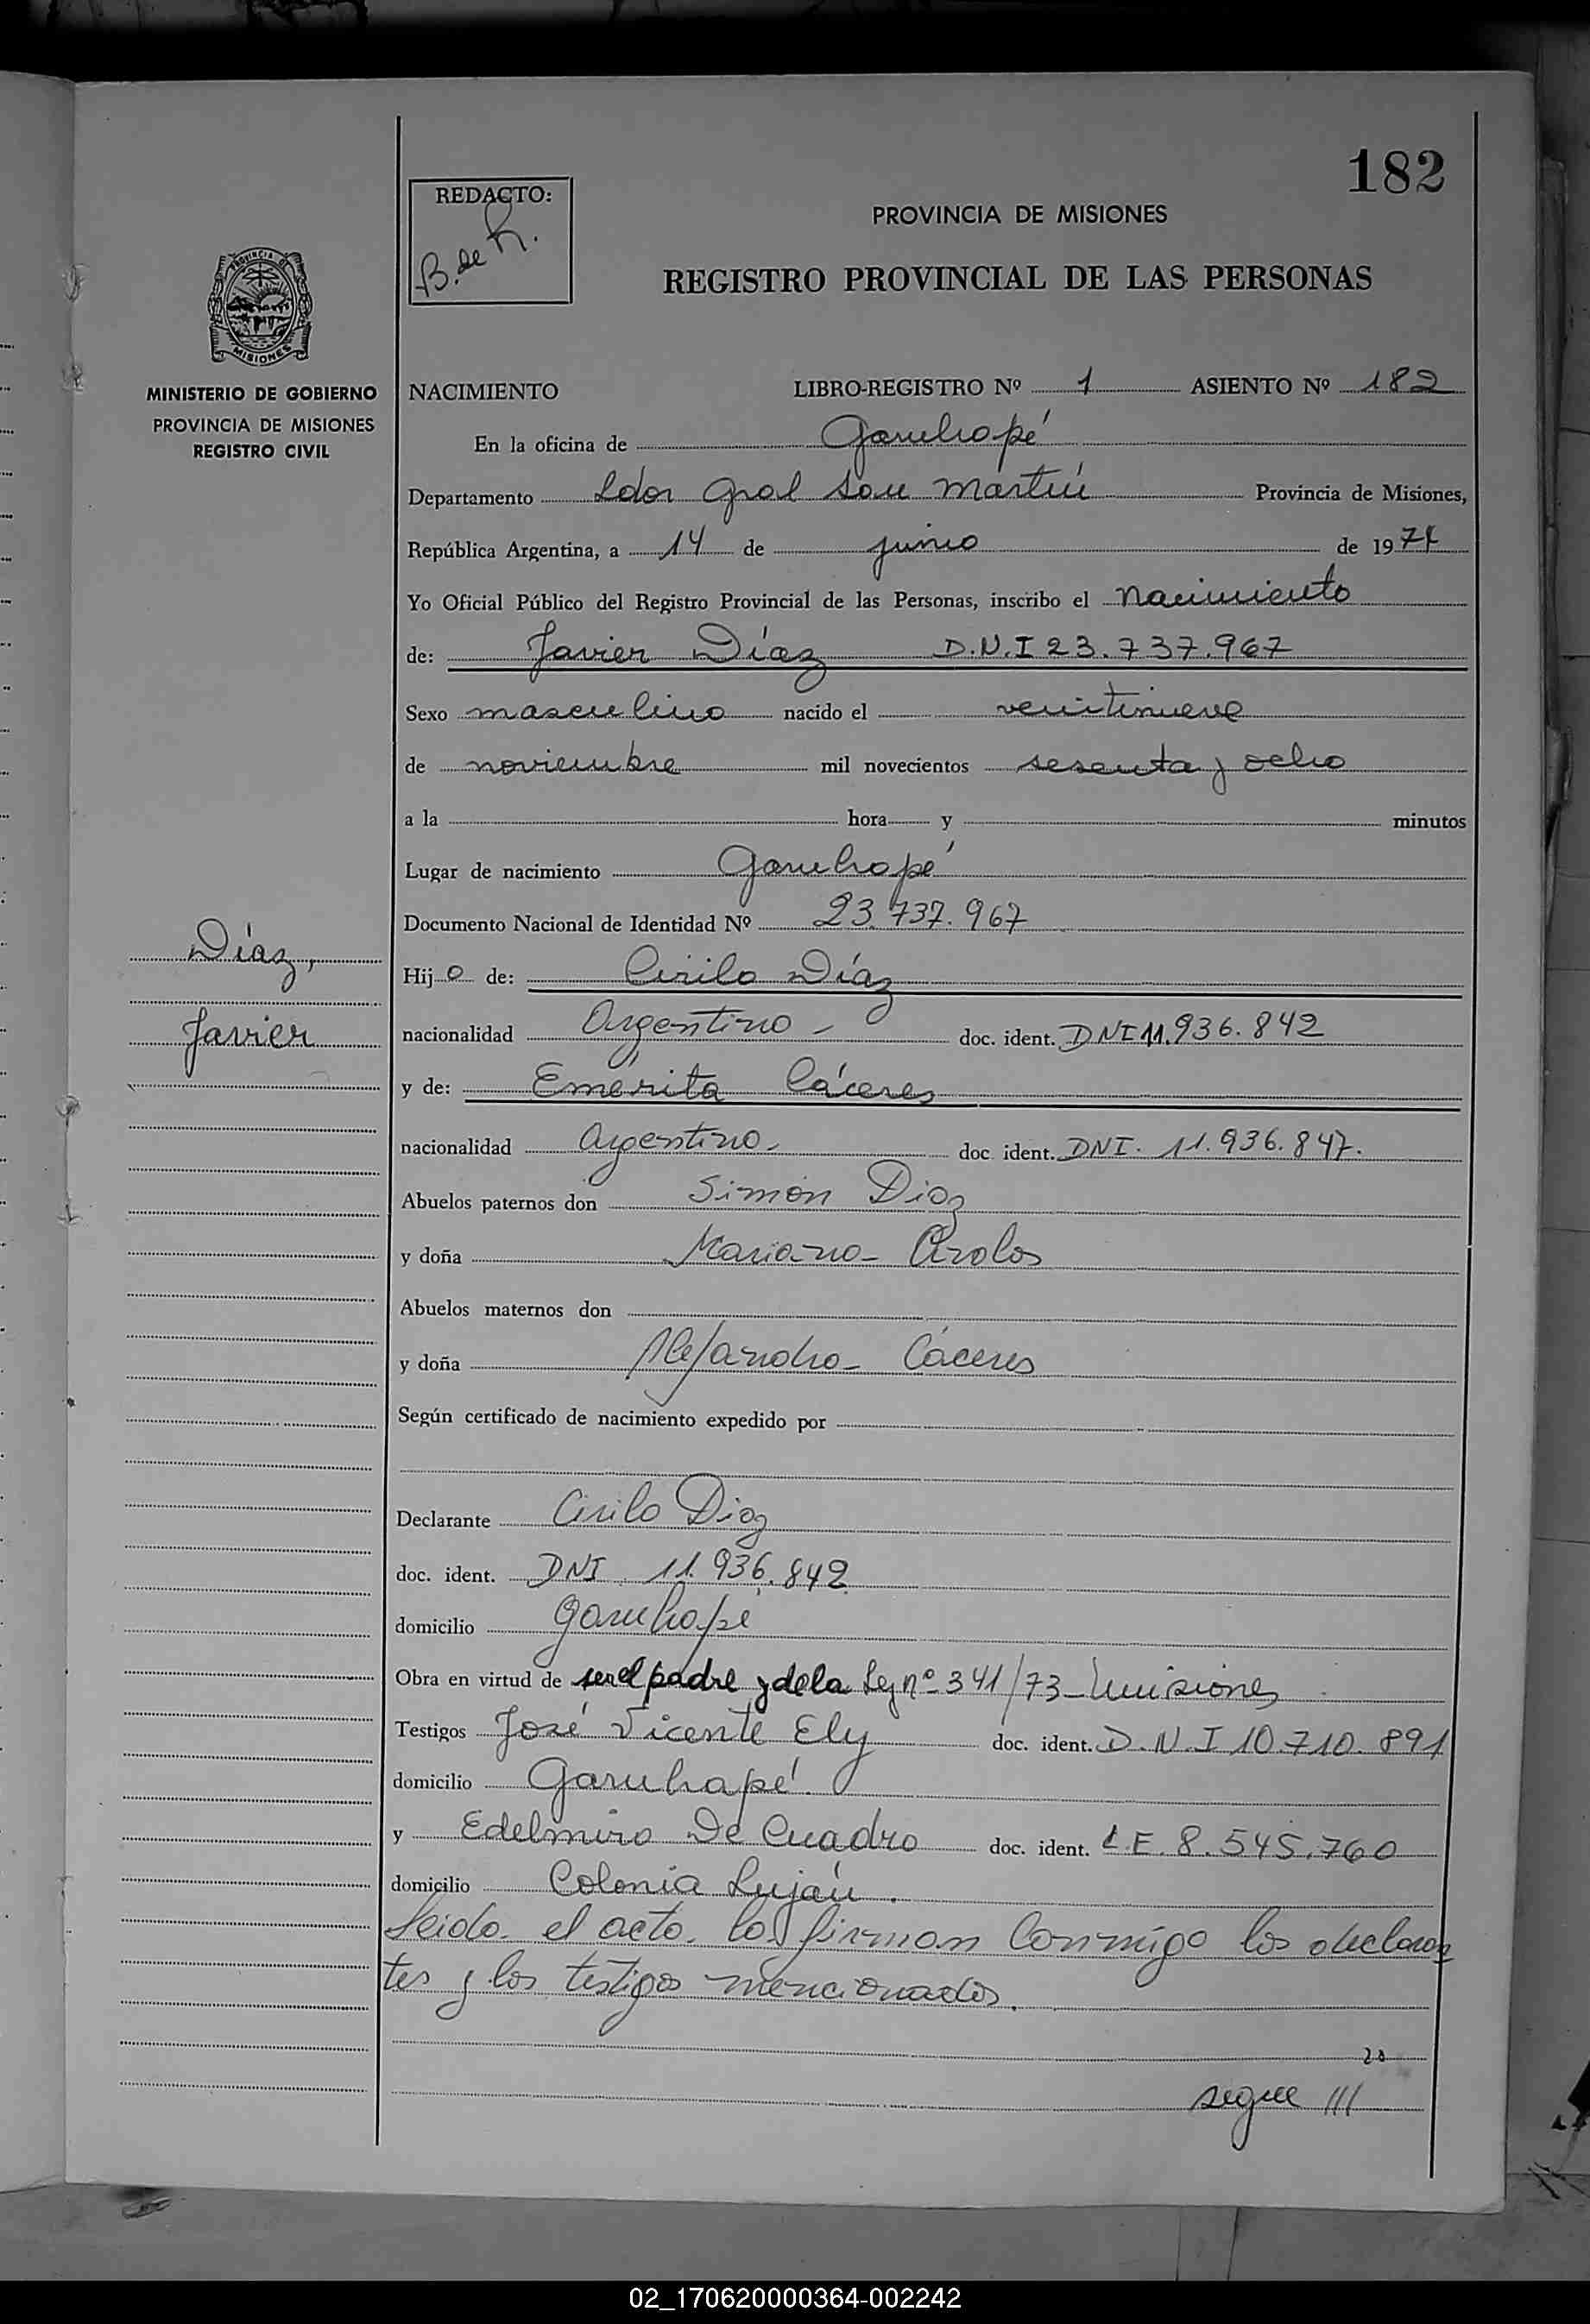 182
REDACTO:
B. de R.
PROVINCIA DE MISIONES
REGISTRO PROVINCIAL DE LAS PERSONAS
PROVINCIA DE
MISIONES
MINISTERIO DE GOBIERNO
PROVINCIA DE MISIONES
REGISTRO CIVIL
NACIMIENTO LIBRO-REGISTRO Nº 1 ASIENTO Nº 182
En la oficina de Garuhapé
Departamento Ldor Gral San Martín Provincia de Misiones,
República Argentina, a 14 de junio de 1974
Yo Oficial Público del Registro Provincial de las Personas, inscribo el Nacimiento
de: Javier Díaz D.N.I 23.737.967
Sexo masculino nacido el veintinueve
de noviembre mil novecientos sesenta y ocho
a la hora y minutos
Lugar de nacimiento Garuhapé
Documento Nacional de Identidad Nº 23.737.967
Díaz,
Javier
Hijo de: Cirilo Díaz
nacionalidad Argentino doc. ident. DNI 11.936.842
y de: Emérita Cáceres
nacionalidad Argentina doc. ident. DNI. 11.936.847.
Abuelos paternos don Simón Díaz
y doña Mariana
Abuelos maternos don
y doña Alejandra Cáceres
Según certificado de nacimiento expedido por
Declarante Cirilo Díaz
doc. ident. DNI 11.936.842
domicilio Garuhapé
Obra en virtud de ser el padre y de la Ley nº 341/73 - Misiones
Testigos José Vicente Ely doc. ident. D.N.I 10.710.891
domicilio Garuhapé
y Edelmiro De Cuadro doc. ident. L.E. 8.545.760
domicilio Colonia Luján.
Leida el acta, la firman conmigo los declaran
tes y los testigos mencionados.
segue ///
02_170620000364-002242